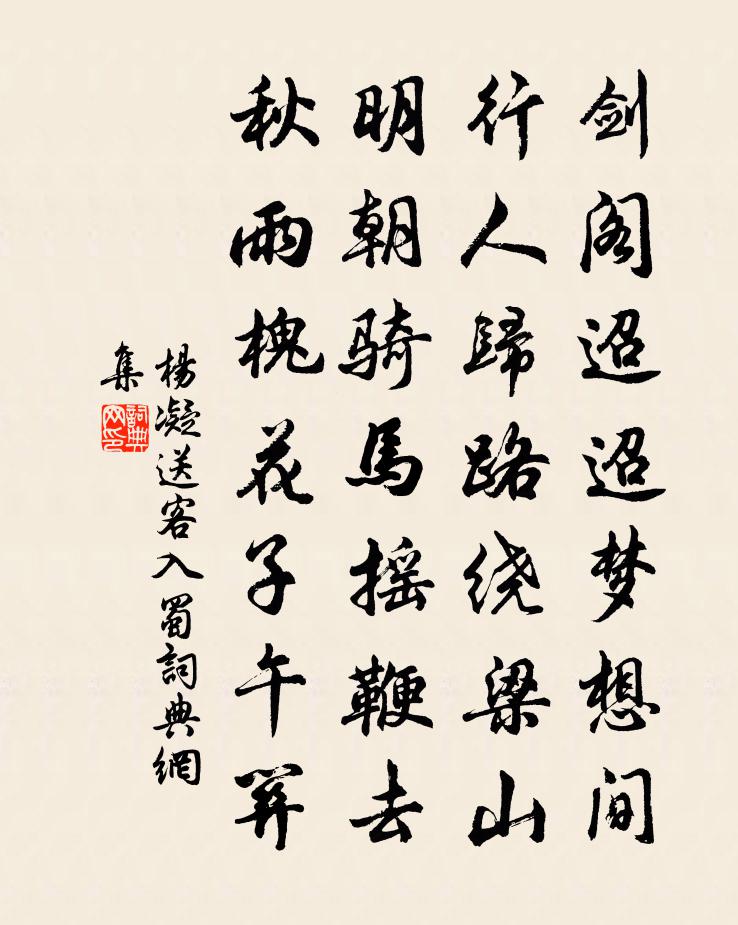 剑阁迢迢梦想间
行人歸路绕梁山
明朝骑馬摇鞭去
秋雨槐花子午関
楊凝送客入蜀詞典網
集
詞典网印